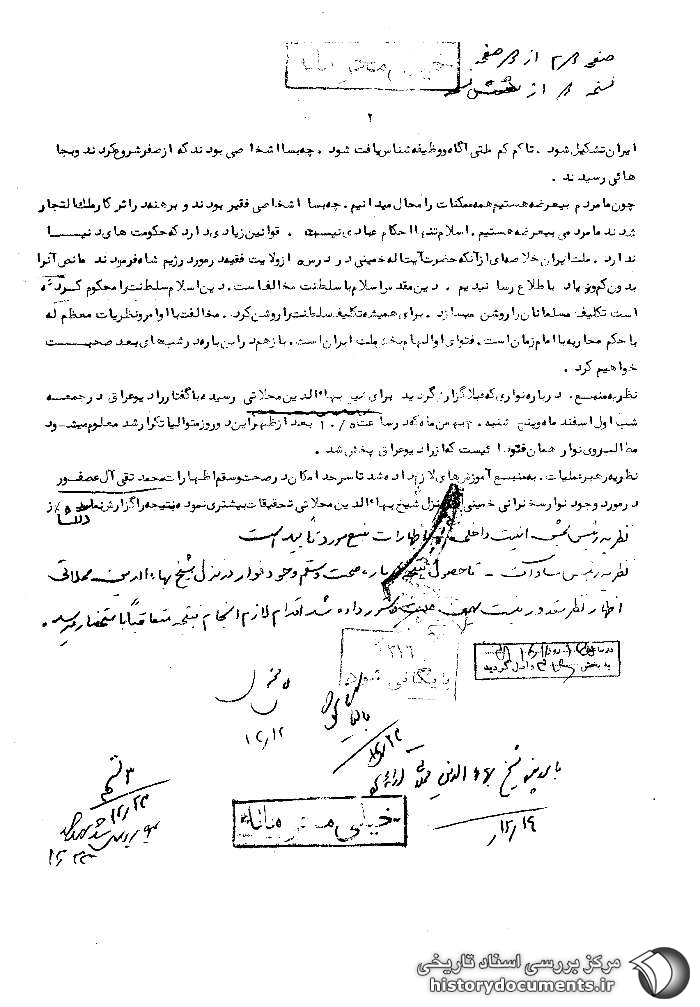 صفحه ۲ از ۲ صفحه
نسخه از شش نسخه
خیلی محرمانه
۲
ایران تشکیل شود . تا کم کم ملتی آگاه و وظیفه شناس یافت شود . چه بسا اشخاصی بودند که از صفر شروع کردند و بجا
هائی رسیدند .
چون ما مردم بیعرضه هستیم همه ممکنات را محال میدانیم . چه بسا اشخاصی فقیر بودند و بر هنه در اثر کار ملک التجار
شدند ما مردمی بیعرضه هستیم . اسلام تنها احکام عبادی نیست . قوانین زیادی دارد که حکومت های دنیا
ندارد . ملت ایران خلاصه ای از آنکه حضرت آیت اله خمینی در درس از ولایت فقیه در مورد رژیم شاه فرمودند ما نص آنرا
بدون کم و زیاد با طلاع رسانیدیم . دین مقدس اسلام با سلطنت مخالف است . دین اسلام سلطنت را محکوم کرده
است تکلیف مسلمانان را روشن میسازد . برای همیشه تکلیف سلطنت را روشن کرد . مخالفت با اوامر و نظریات معظم له
با حکم محاربه با امام زمان است . فتوای او الهام بخش ملت ایران است . باز هم در این باره در شب های بعد صحبت
خواهیم کرد .
نظریه منبع . درباره نواری که قبلا گزارش گردید برای شیخ بهاء الدین محلاتی رسیده با گفتار رادیو عراق در جمعه
شب اول اسفند ماه و پنج شنبه ۳۰ بهمن ماه که در ساعت ۱۰/ بعد از ظهر این دو روز متوالیا تکرار شد معلوم میشود
مطالب روی نوار همان فتوائیست که از رادیو عراق پخش شد .
نظریه رهبر عملیات . به منبع آموزش های لازم داده شد تا سر حد امکان در صحت و سقم اظهارات محمد تقی آل عصفور
در مورد وجود نوار سخنرانی خمینی در منزل شیخ بهاء الدین محلاتی تحقیقات بیشتری نموده و نتیجه را گزارش نماید
نظریه رئیس بخش امنیت داخلی - اظهارات منبع مورد تأیید است
نظریه رئیس ساواک - تا حصول نتیجه درباره صحت و سقم وجود نوار در منزل شیخ بهاء الدین محلاتی
اظهار نظر مقدور نیست دستور داده شد اقدام لازم انجام نتیجه متعاقباً باستحضار میرسد .
۳۱۶
بایگانی شود
به بخش ۳۱۲ واصل گردید
۱۲/۱۲
۱۲/۲۳
با پرونده شیخ بهاء الدین محلاتی ارائه شود
۱۲/۱۴
۱۲/۲۳
خیلی محرمانه
مرکز بررسی اسناد تاریخی
historydocuments.ir